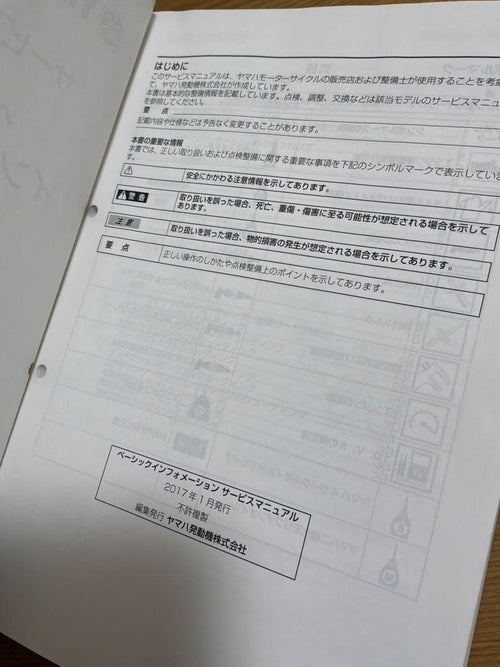 はじめに
このサービスマニュアルは、ヤマハモーターサイクルの販売店および整備士が使用することを考慮
て、ヤマハ発動機株式会社が作成しています。
本書は基本的な整備情報を記載しています。点検、調整、交換などは該当モデルのサービスマニュ
を参照してください。
要 点
記載内容や仕様などは予告なく変更することがあります。
本書の重要な情報
本書では、正しい取り扱いおよび点検整備に関する重要な事項を下記のシンボルマークで表示していま
す。
安全にかかわる注意情報を示してあります。
警告 取り扱いを誤った場合、死亡、重傷・傷害に至る可能性が想定される場合を示して
あります。
注意 取り扱いを誤った場合、物的損害の発生が想定される場合を示してあります。
要 点 正しい操作のしかたや点検整備上のポイントを示してあります。
ベーシックインフォメーション サービスマニュアル
2017年1月発行
不許複製
編集発行 ヤマハ発動機株式会社